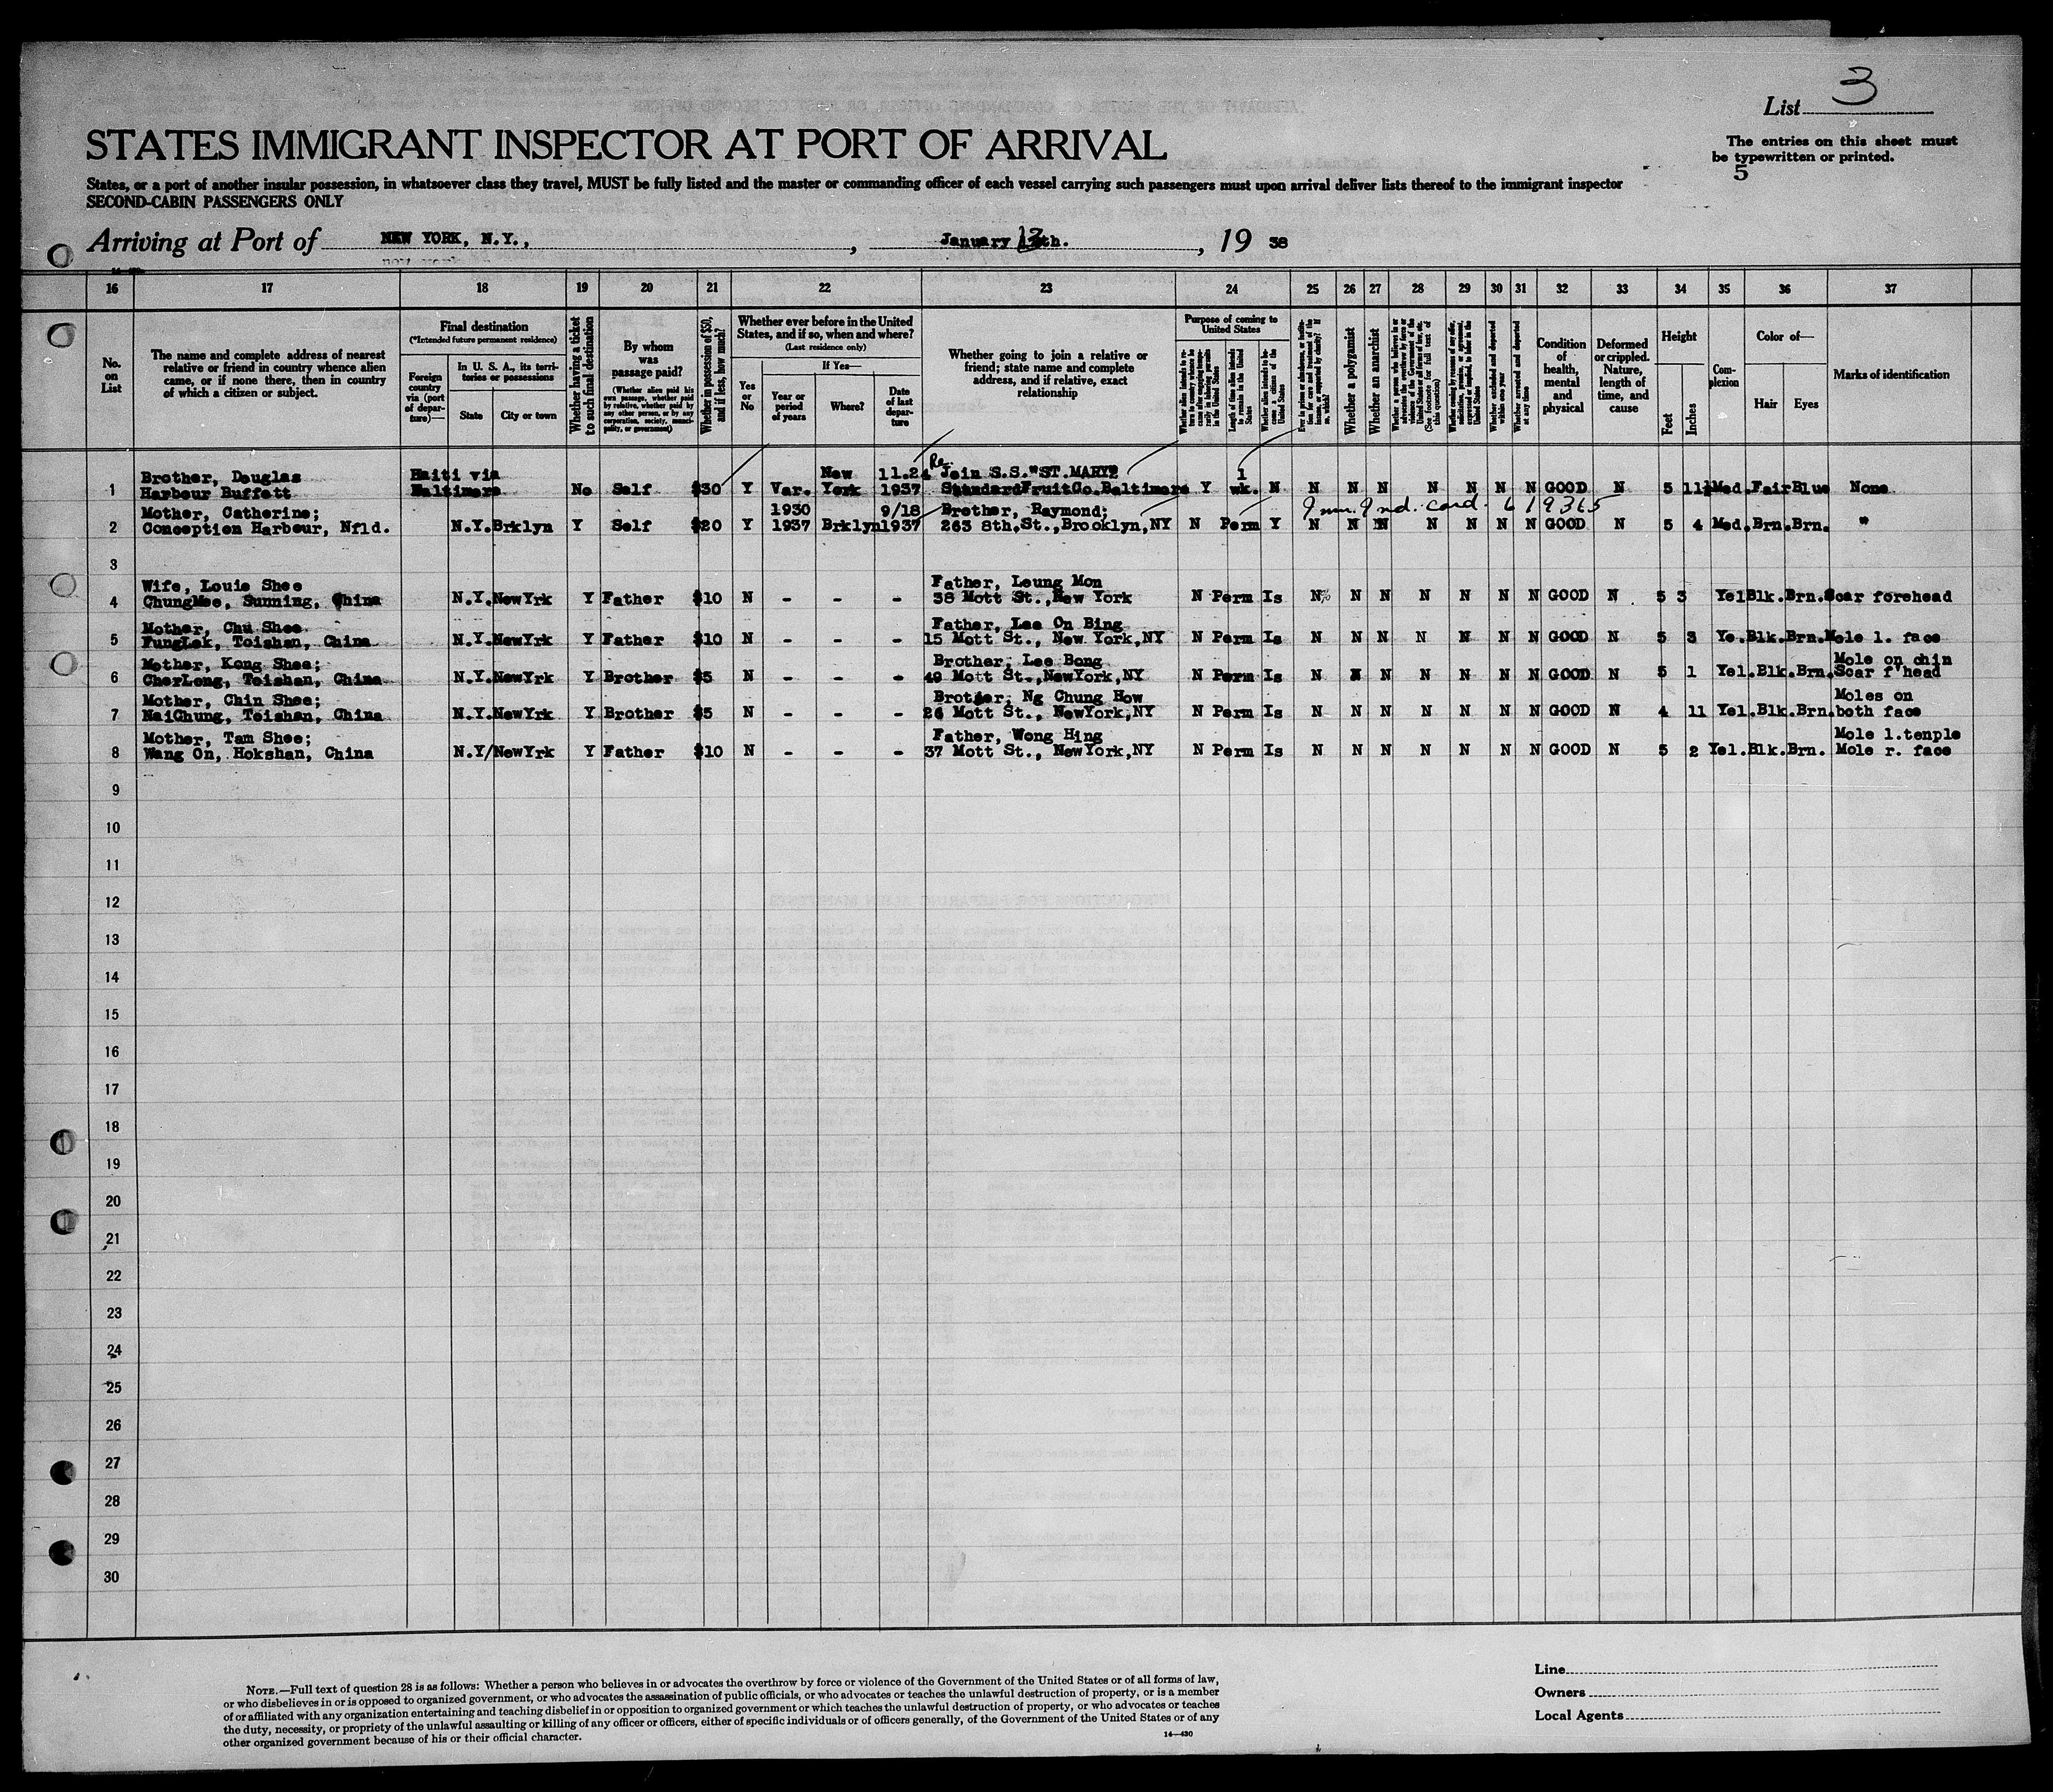 List 3
STATES IMMIGRANT INSPECTOR AT PORT OF ARRIVAL
The entries on this sheet must
be typewritten or printed.
5
States, or a port of another insular possession, in whatsoever class they travel, MUST be fully listed and the master or commanding officer of each vessel carrying such passengers must upon arrival deliver lists thereof to the immigrant inspector
SECOND-CABIN PASSENGERS ONLY
Arriving at Port of NEW YORK, N.Y., , January 13th. , 19 38
16 17 18 19 20 21 22 23 24 25 26 27 28 29 30 31 32 33 34 35 36 37
No. on List
The name and complete address of nearest relative or friend in country whence alien came, or if none there, then in country of which a citizen or subject.
Final destination
(*Intended future permanent residence)
Foreign country via (port of departure)—
In U. S. A., its territories or possessions
State
City or town
Whether having a ticket to such final destination
By whom was passage paid?
(Whether alien paid his own passage, whether paid by relative, whether paid by any other person, or by any corporation, society, municipality, or government)
Whether in possession of $50, and if less, how much?
Whether ever before in the United States, and if so, when and where?
(Last residence only)
Yes or No
If Yes—
Year or period of years
Where?
Date of last departure
Whether going to join a relative or friend; state name and complete address, and if relative, exact relationship
Purpose of coming to United States
Length of time alien intends to remain in the United States
Whether a polygamist
Whether an anarchist
(See footnote for full text of this question)
Whether excluded and deported within one year
Whether arrested and deported at any time
Condition of health, mental and physical
Deformed or crippled. Nature, length of time, and cause
Height
Feet
Inches
Complexion
Color of—
Hair
Eyes
Marks of identification
Brother, Douglas Haiti via New 11.24 Re Join S.S."ST.MARY" 1
1 Harbour Buffett Baltimore No Self $30 Y Var. York 1937 StandardFruitCo.Baltimore Y wk. N N N N N N N N GOOD N 5 11½ Med. Fair Blue None
Mother, Catherine; 1930 9/18 Brother, Raymond; Imm. Ind. card. 619365
2 Conception Harbour, Nfld. N.Y. Brklyn Y Self $20 Y 1937 Brklyn 1937 263 8th,St.,Brooklyn,NY N Perm Y N N N N N N N GOOD N 5 4 Med. Brn. Brn. "
3
Wife, Louie Shee Father, Leung Mon
4 ChungMee, Sunning, China N.Y. NewYrk Y Father $10 N - - - 38 Mott St.,New York N Perm Is N N N N N N N GOOD N 5 3 Yel Blk. Brn. Scar forehead
Mother, Chu Shee Father, Lee On Bing
5 FungLek, Toishan, China N.Y. NewYrk Y Father $10 N - - - 15 Mott St., New York,NY N Perm Is N N N N N N N GOOD N 5 3 Ye. Blk. Brn. Mole l. face
Mother, Kong Shee; Brother, Lee Bong Mole on chin
6 CherLong, Toishan, China N.Y. NewYrk Y Brother $5 N - - - 49 Mott St.,NewYork,NY N Perm Is N N N N N N N GOOD N 5 1 Yel. Blk. Brn. Scar f'head
Mother, Chin Shee; Brother, Ng Chung How Moles on
7 NaiChung, Toishan, China N.Y. NewYrk Y Brother $5 N - - - 26 Mott St., NewYork,NY N Perm Is N N N N N N N GOOD N 4 11 Yel. Blk. Brn. both face
Mother, Tam Shee; Father, Wong Hing Mole l.tenple
8 Wang On, Hokshan, China N.Y/ NewYrk Y Father $10 N - - - 37 Mott St., NewYork,NY N Perm Is N N N N N N N GOOD N 5 2 Yel. Blk. Brn. Mole r. face
9
10
11
12
13
14
15
16
17
18
19
20
21
22
23
24
25
26
27
28
29
30
NOTE.—Full text of question 28 is as follows: Whether a person who believes in or advocates the overthrow by force or violence of the Government of the United States or of all forms of law,
or who disbelieves in or is opposed to organized government, or who advocates the assassination of public officials, or who advocates or teaches the unlawful destruction of property, or is a member
of or affiliated with any organization entertaining and teaching disbelief in or opposition to organized government or which teaches the unlawful destruction of property, or who advocates or teaches
the duty, necessity, or propriety of the unlawful assaulting or killing of any officer or officers, either of specific individuals or of officers generally, of the Government of the United States or of any
other organized government because of his or their official character.
14—430
Line
Owners
Local Agents